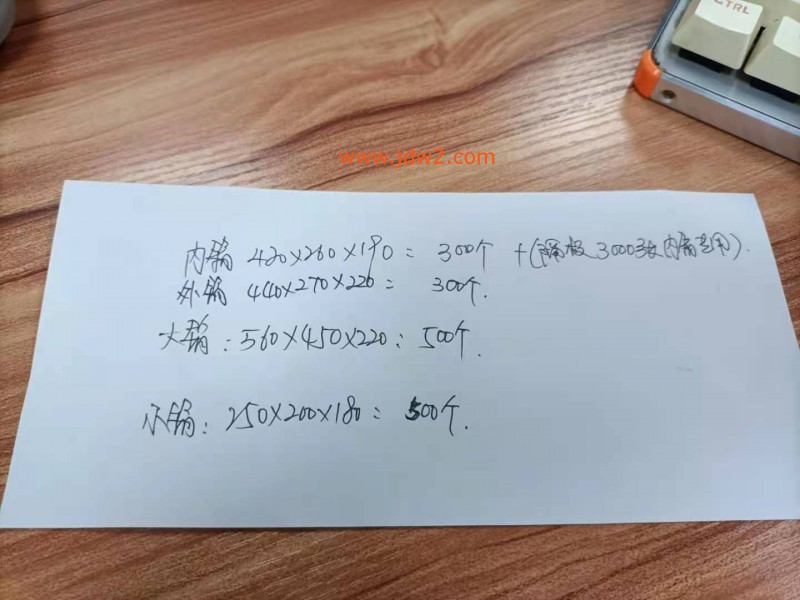 CTRL
www.jdw2.com
内箱 420×260×190 = 300个 +(隔板 3000张 内箱专用).
外箱 440×270×220 = 300个.
大箱: 560×450×220: 500个.
小箱: 250×200×180: 500个.